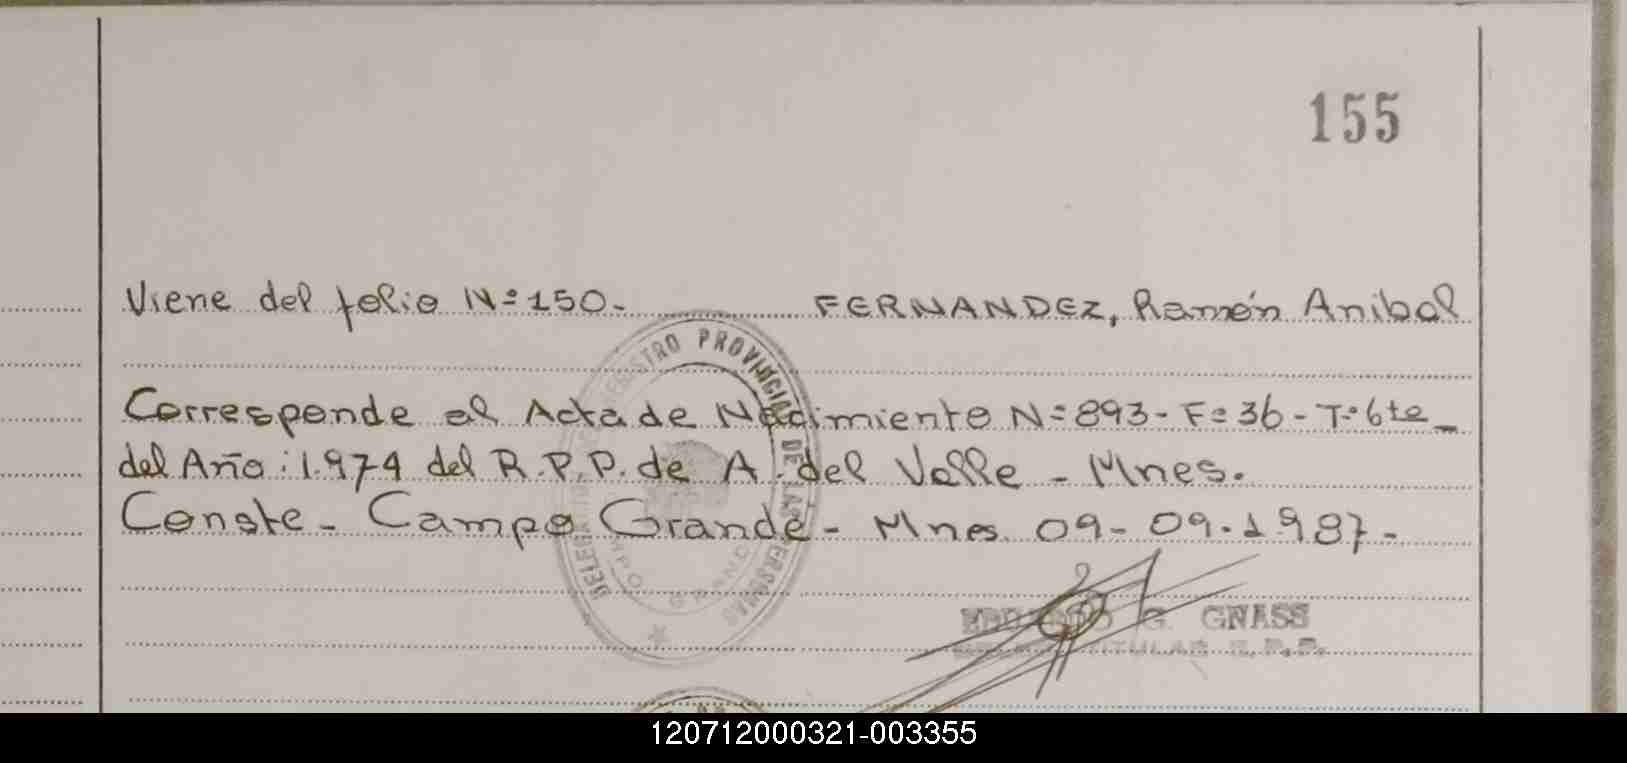 155
Viene del folio Nº 150- FERNANDEZ, Ramón Anibal
Corresponde al Acta de Nacimiento Nº 893- Fº 36 - Tº 6te
del Año: 1.974 del R.P.P. de A. del Valle - Mnes.
Conste - Campo Grande - Mnes. 09-09-1987-
REGISTRO PROVINCIAL DE LAS PERSONAS
CAMPO GRANDE
G. GNASS
TITULAR R.P.P.
120712000321-003355